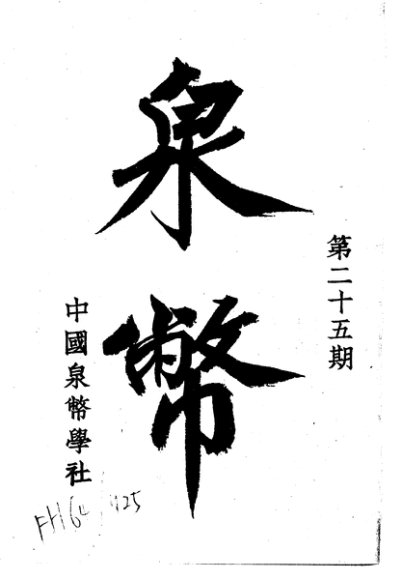 第二十五期
泉幣
中國泉幣學社